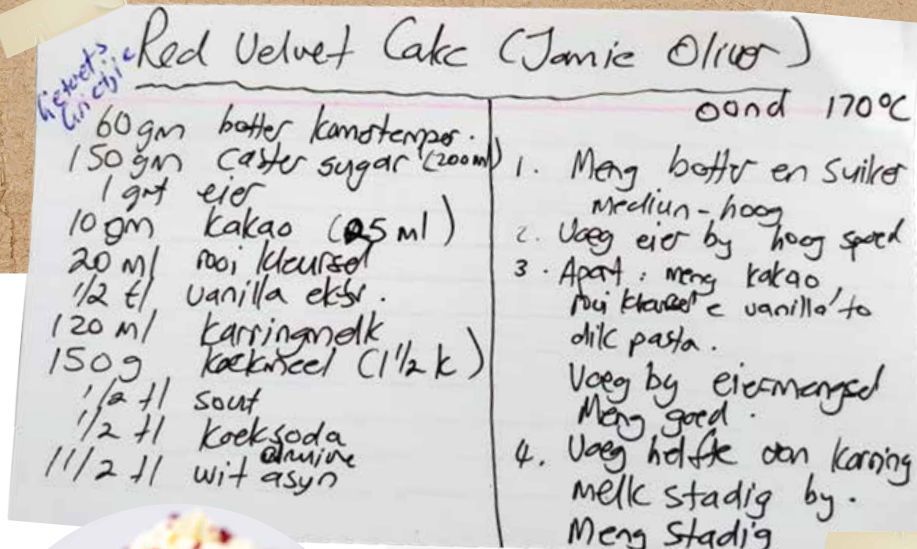 Red Velvet Cake (Jamie Oliver)
60 gm botter kamertemper.
150 gm caster sugar (200ml)
1 grt eier
10 gm kakao (25 ml)
20 ml rooi kleursel
1/2 tl vanilla ekstr.
120 ml karringmelk
150g koekmeel (1 1/2 k)
1/2 tl sout
1/2 tl koeksoda
1 1/2 tl wit asyn
oond 170°C
1. Meng botter en suiker
medium-hoog
2. Voeg eier by hoog spoed
3. Apart: meng kakao,
rooi kleursel e vanilla to
dik pasta.
Voeg by eiermengsel
Meng goed.
4. Voeg helfte van karring
melk stadig by.
Meng stadig